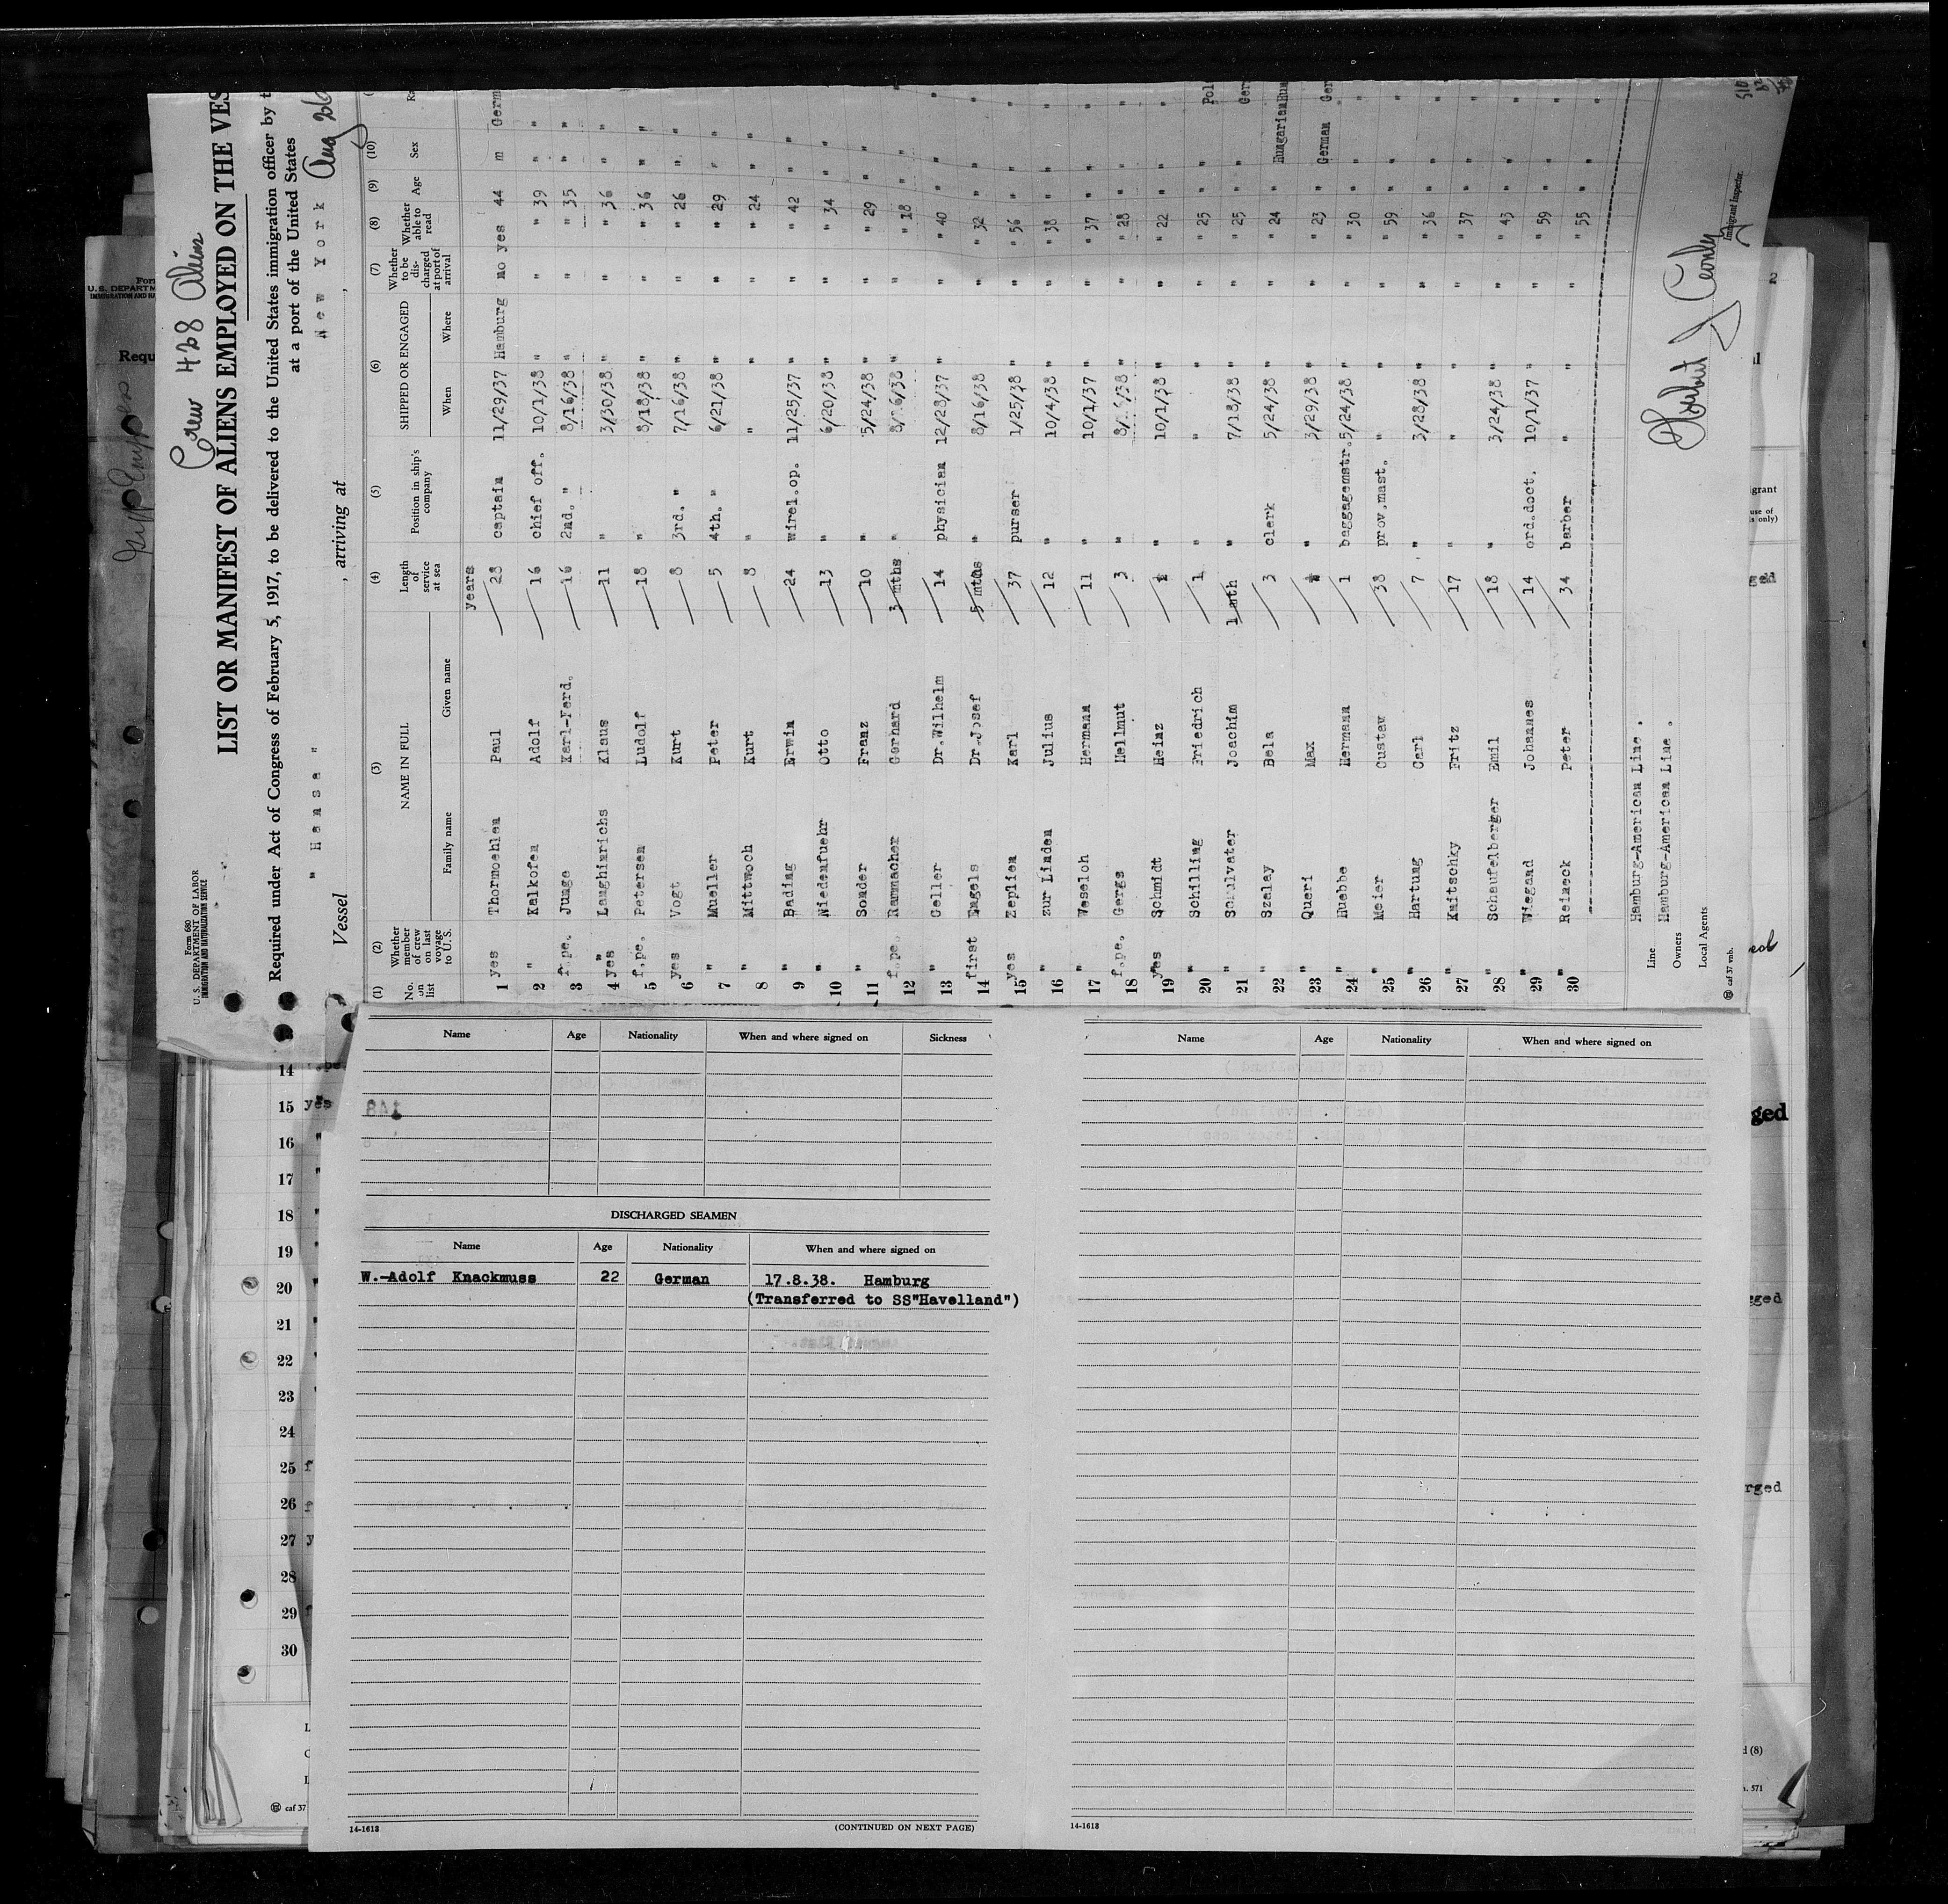 Crew 428 Aliens
Form 680
U. S. DEPARTMENT OF LABOR
IMMIGRATION AND NATURALIZATION SERVICE
LIST OR MANIFEST OF ALIENS EMPLOYED ON THE VES
Required under Act of Congress of February 5, 1917, to be delivered to the United States immigration officer by t
at a port of the United States
Vessel " Hansa " , arriving at New York , Aug 26
(1) (2) (3) (4) (5) (6) (7) (8) (9) (10)
No. on list Whether member of crew on last voyage to U. S. NAME IN FULL Length of service at sea Position in ship's company SHIPPED OR ENGAGED Whether to be discharged at port of arrival Whether able to read Age Sex
Family name Given name When Where
years
1 yes Thormoehlen Paul 28 captain 11/29/37 Hamburg no yes 44 m Germ
2 " Kalkofen Adolf 16 chief off. 10/1/38 " " " 39 " "
3 f.pe. Junge Karl-Ferd. 16 2nd. " 8/16/38 " " " 35 " "
4 yes Laughinrichs Klaus 11 " 3/30/38 " " " 36 " "
5 f.pe. Petersen Ludolf 18 " 8/18/38 " " " 36 " "
6 yes Vogt Kurt 8 3rd. " 7/16/38 " " " 26 " "
7 " Mueller Peter 5 4th. " 6/21/38 " " " 29 " "
8 " Mittwoch Kurt 8 " " " " " 24 " "
9 " Bading Erwin 24 wirel.op. 11/25/37 " " " 42 " "
10 " Niedenfuehr Otto 13 " 6/20/38 " " " 34 " "
11 " Sonder Franz 10 " 5/24/38 " " " 29 " "
12 f.pe. Rammacher Gerhard 3 mths " " " " 18 " "
13 " Celler Dr.Wilhelm 14 physician 12/28/37 " " " 40 " "
14 first Engels Dr.Josef 5 mths " 8/16/38 " " " 32 " "
15 yes Zeplien Karl 37 purser 1/25/38 " " " 56 " "
16 " zur Linden Julius 12 " 10/4/38 " " " 38 " "
17 " Weseloh Hermann 11 " 10/1/37 " " " 37 " "
18 f.pe. Gergs Hellmut 3 " " " " 28 " "
19 yes Schmidt Heinz " 10/1/38 " " " 22 " "
20 " Schilling Friedrich 1 " " " " " 25 " Pol
21 " Joachim 1 mth " 7/18/38 " " " 25 " Ger
22 " Szalay Bela 3 clerk 5/24/38 " " " 24 " Hungarian Hu
23 " Queri Max " 3/29/38 " " " 23 " German Ger
24 " Huebbe Hermann 1 baggagemstr. 5/24/38 " " " 30 " "
25 " Meier Gustav 38 prov.mast. " " " " 59 " "
26 " Hartung Carl 7 " 3/28/38 " " " 36 " "
27 " Knitschky Fritz 17 " " " " " 37 " "
28 " Schaufelberger Emil 18 " 3/24/38 " " " 43 " "
29 " Wiegand Johannes 14 ord.doct. 10/1/37 " " " 59 " "
30 " Reineck Peter 34 barber " " " " 55 " "
Line Hamburg-American Line.
Owners Hamburg-American Line.
Local Agents
Immigrant Inspector.
caf 37 vnb.
Name Age Nationality When and where signed on Sickness
DISCHARGED SEAMEN
Name Age Nationality When and where signed on
W.-Adolf Knackmuss 22 German 17.8.38. Hamburg
(Transferred to SS"Havelland")
14-1618 (CONTINUED ON NEXT PAGE)
Name Age Nationality When and where signed on
14-1618
14
15 yes
16
17
18
19
20
21
22
23
24
25 f
26
27 y
28
29
30
caf 37
ged
rged